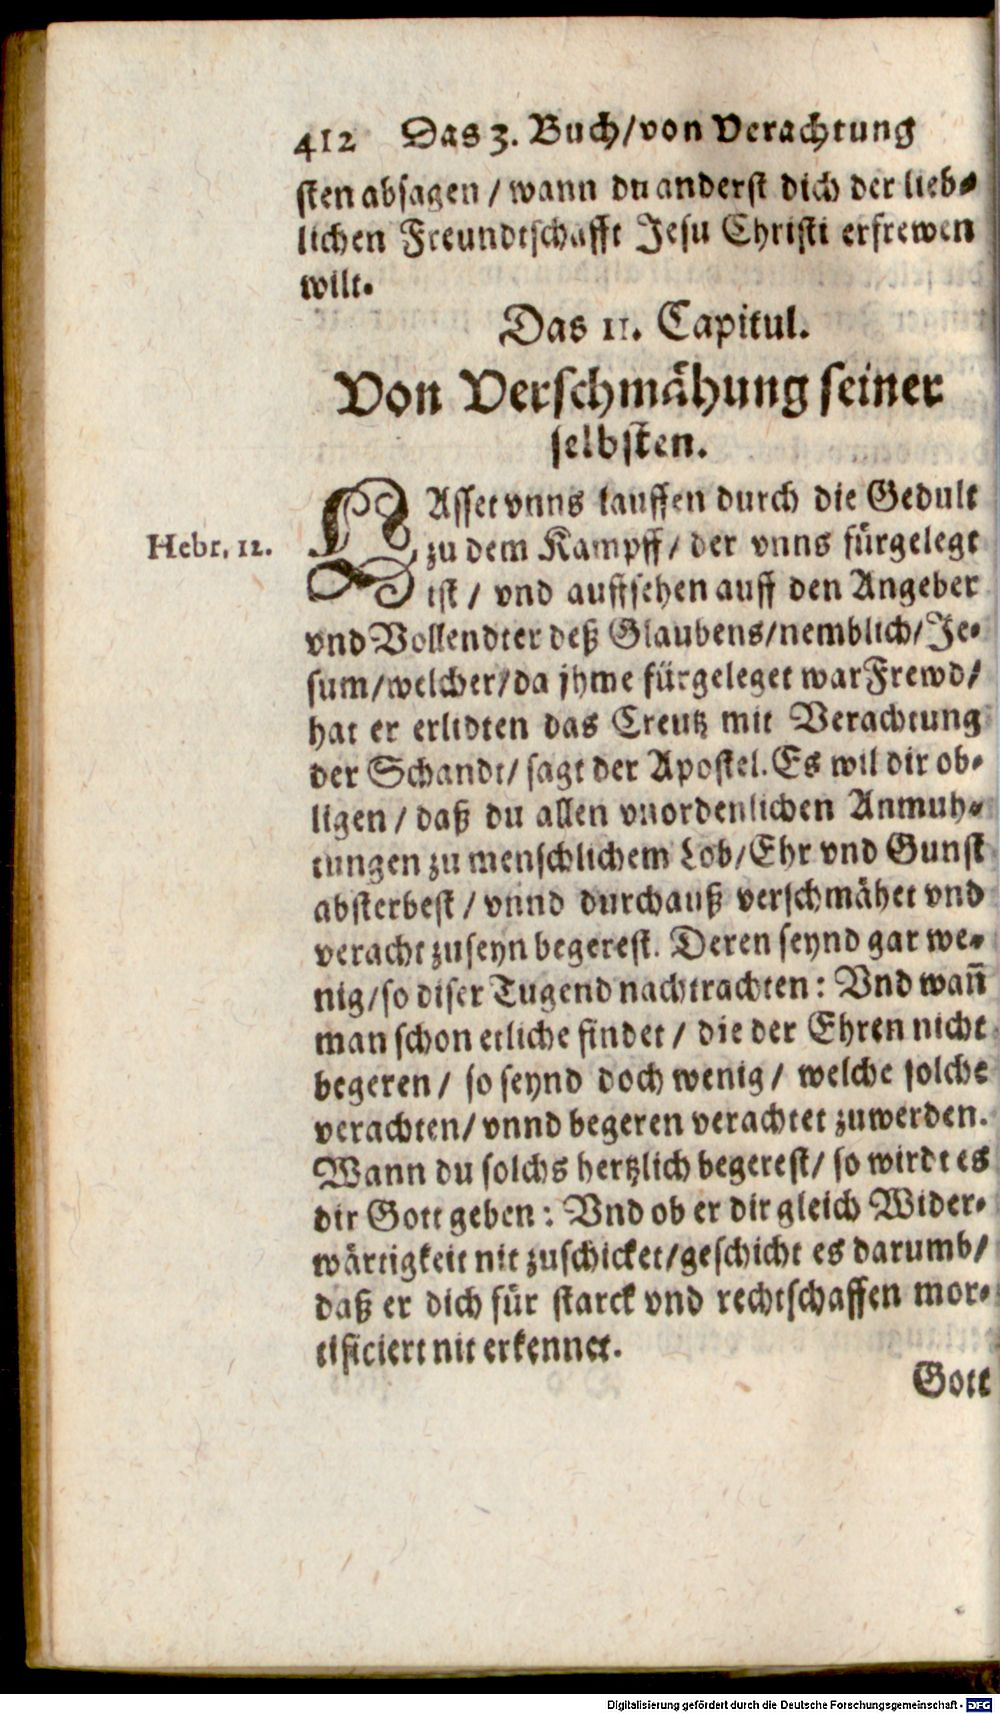 412 Das 3. Buch/von Verachtung
sten absagen / wann du anderst dich der lieb-
lichen Freundtschafft Jesu Christi erfrewen
wilt.
Das 11. Capitul.
Von Verschmähung seiner
selbsten.
LAsset vnns lauffen durch die Gedult
Hebr. 12.
zu dem Kampff / der vnns fürgelegt
ist / vnd auffsehen auff den Angeber
vnd Vollendter deß Glaubens/nemblich/Je-
sum/welcher/da jhme fürgeleget war Frewd/
hat er erlidten das Creutz mit Verachtung
der Schandt/ sagt der Apostel. Es wil dir ob-
ligen / daß du allen vnordenlichen Anmuh-
tungen zu menschlichem Lob/Ehr vnd Gunst
absterbest / vnnd durchauß verschmähet vnd
veracht zuseyn begerest. Deren seynd gar we-
nig/so diser Tugend nachtrachten: Vnd wañ
man schon etliche findet / die der Ehren nicht
begeren / so seynd doch wenig / welche solche
verachten/ vnnd begeren verachtet zuwerden.
Wann du solchs hertzlich begerest/ so wirdt es
dir Gott geben: Vnd ob er dir gleich Wider-
wärtigkeit nit zuschicket/geschicht es darumb/
daß er dich für starck vnd rechtschaffen mor-
tificiert nit erkennet.
Gott
Digitalisierung gefördert durch die Deutsche Forschungsgemeinschaft - DFG